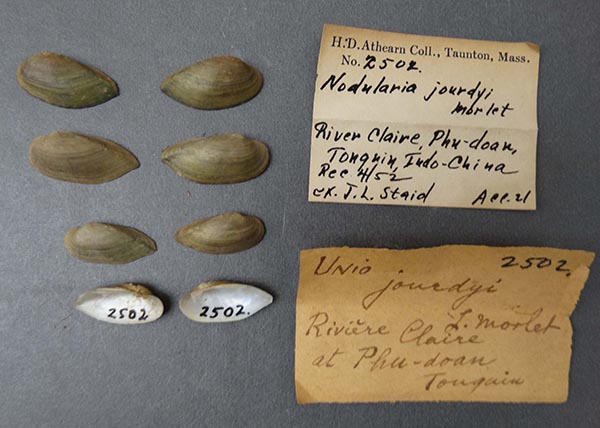 H.D. Athearn Coll., Taunton, Mass.
No. 2502.
Nodularia jourdyi
Morlet
River Claire, Phu-doan,
Tonquin, Indo-China
Rec 4/52
ex. J.L. Staid Acc. 21
Unio 2502.
jourdyi
L. Morlet
Rivière Claire
at Phu-doan
Tonquin
2502
2502.